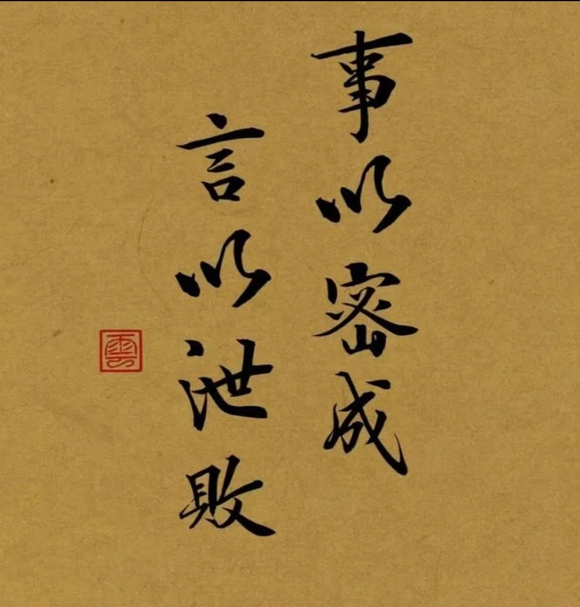 事以密成
言以泄敗
雲